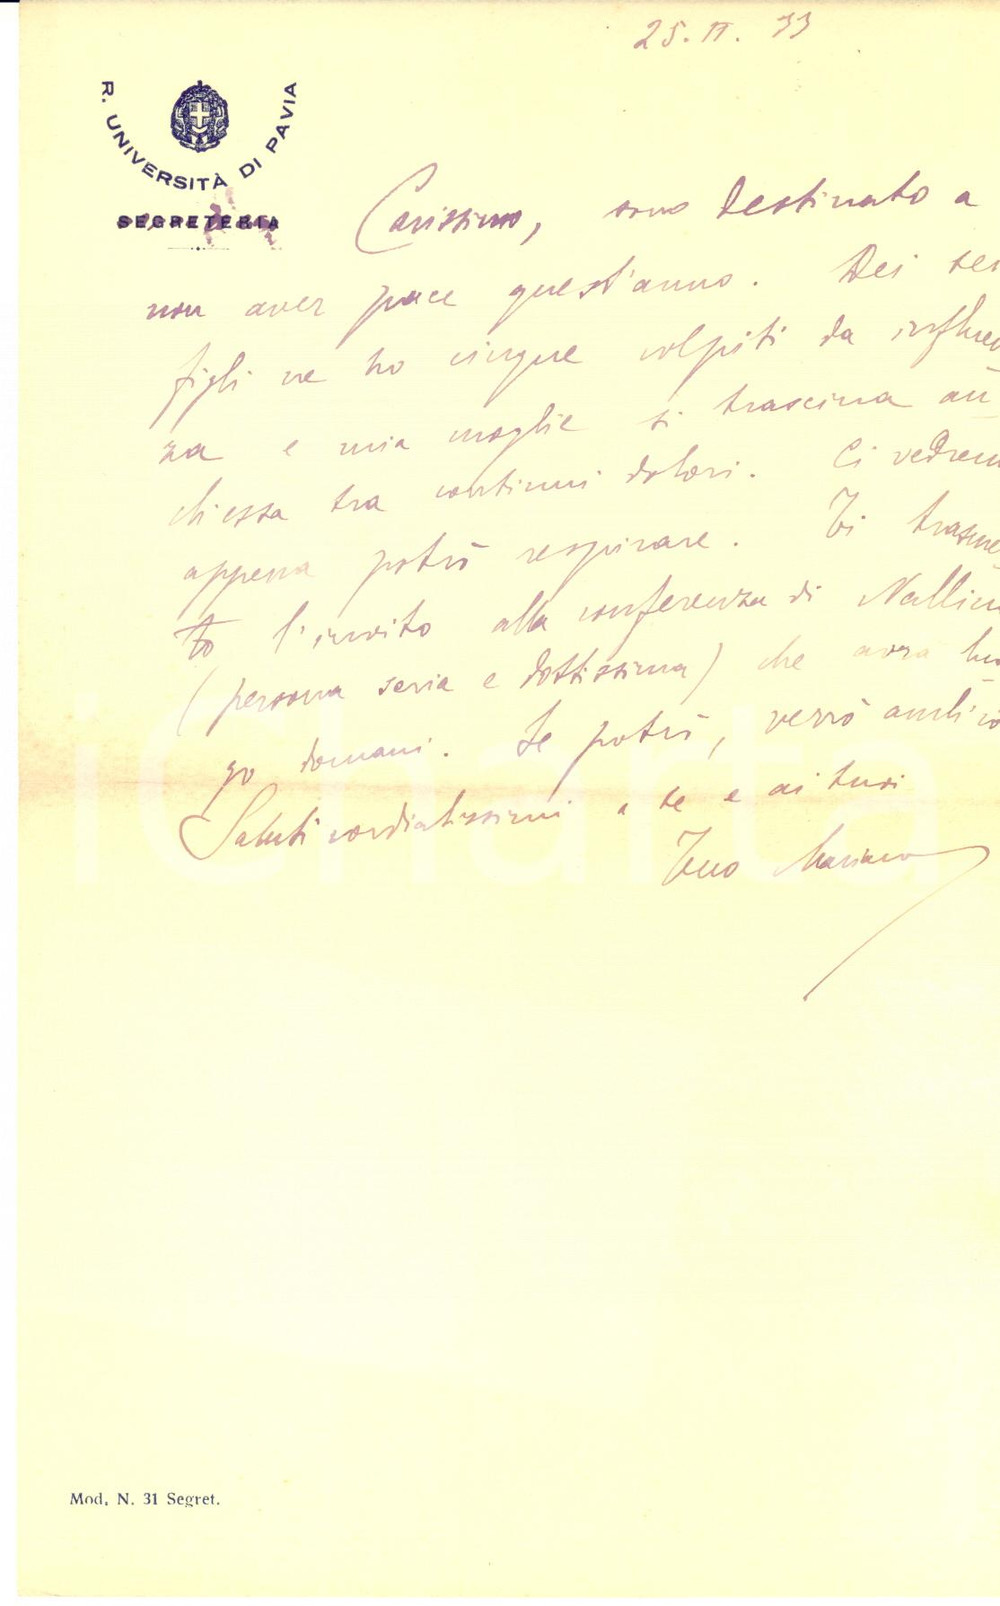 25.II.33
R. UNIVERSITÀ DI PAVIA
SEGRETERIA
Carissimo, sono destinato a
non aver pace quest'anno. Dei sei
figli ne ho cinque colpiti da influen
za e mia moglie si trascina an
ch'essa tra continui dolori. Ci vedrem
appena potrò respirare. Ti trasmet
to l'invito alla conferenza di Nallin
(persona seria e dottissima) che avrà luo
go domani. Se potrò, verrò anch'io
Saluti cordialissimi a te e ai tuoi
Tuo Mariano
iCharta
Mod. N. 31 Segret.